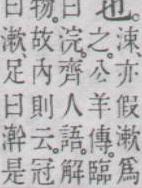 涑亦假漱爲
也。之。公羊傳。臨
曰浣。齊人語解
物。故內則云。冠
曰漱足曰澣是